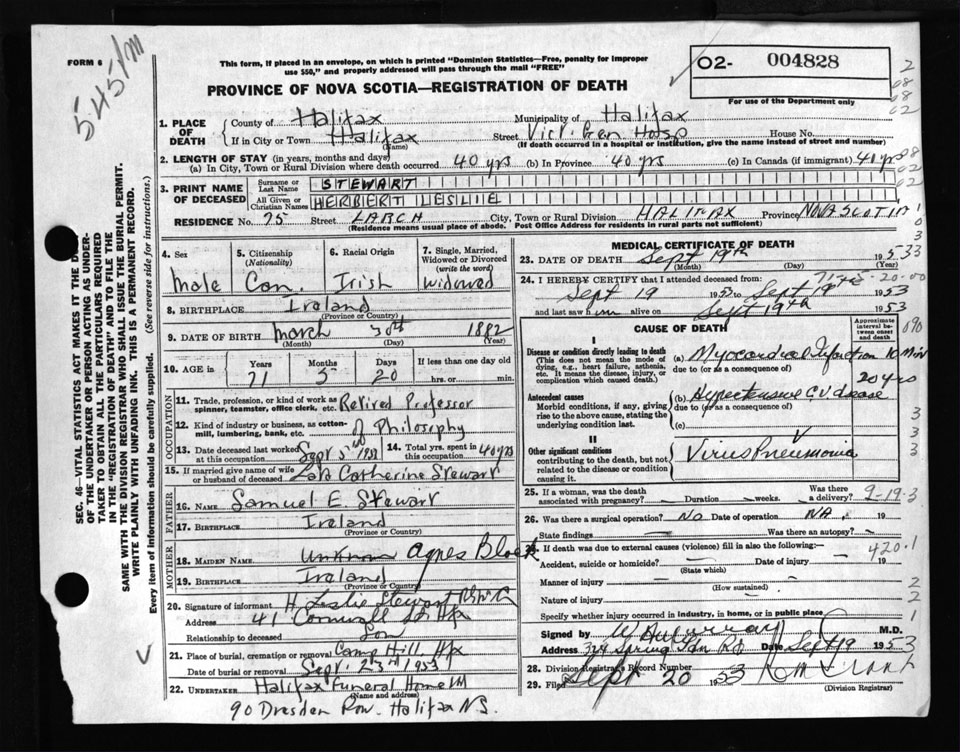 545 VM
FORM 6
This form, if placed in an envelope, on which is printed "Dominion Statistics—Free, penalty for improper
use $50," and properly addressed will pass through the mail "FREE"
PROVINCE OF NOVA SCOTIA—REGISTRATION OF DEATH
O2- 004828
For use of the Department only
2
08
08
02
1. PLACE OF DEATH { County of Halifax Municipality of Halifax
If in City or Town Halifax (Name) Street Vict. Gen Hosp House No.
(If death occurred in a hospital or institution, give the name instead of street and number)
2. LENGTH OF STAY (in years, months and days)
(a) In City, Town or Rural Division where death occurred 40 yrs (b) In Province 40 yrs (c) In Canada (if immigrant) 40 yrs
3. PRINT NAME OF DECEASED { Surname or Last Name STEWART
All Given or Christian Names HERBERT LESLIE
RESIDENCE No. 75 Street LARCH City, Town or Rural Division HALIFAX Province NOVA SCOTIA
(Residence means usual place of abode. Post Office Address for residents in rural parts not sufficient)
4. Sex male
5. Citizenship (Nationality) Can.
6. Racial Origin Irish
7. Single, Married, Widowed or Divorced (write the word) Widowed
8. BIRTHPLACE Ireland
(Province or Country)
9. DATE OF BIRTH March 30th 1882
(Month) (Day) (Year)
10. AGE in Years 71 Months 5 Days 20 If less than one day old hrs. or min.
OCCUPATION
11. Trade, profession, or kind of work as spinner, teamster, office clerk, etc. Retired Professor
12. Kind of industry or business, as cotton-mill, lumbering, bank, etc. of Philosophy
13. Date deceased last worked at this occupation Sept 5th
14. Total yrs. spent in this occupation 40 yrs
15. If married give name of wife or husband of deceased Late Catherine Stewart
FATHER
16. NAME Samuel E. Stewart
17. BIRTHPLACE Ireland
(Province or Country)
MOTHER
18. MAIDEN NAME unknown Agnes
19. BIRTHPLACE Ireland
(Province or Country)
20. Signature of informant H. Leslie Stewart
Address 41 Cornwall St Hfx
Relationship to deceased Son
21. Place of burial, cremation or removal Camp Hill, Hfx
Date of burial or removal Sept. 23rd 1953
22. UNDERTAKER Halifax Funeral Home
(Name and address)
90 Dresden Row. Halifax N.S.
MEDICAL CERTIFICATE OF DEATH
23. DATE OF DEATH Sept 19th 1953
(Month) (Day)
24. I HEREBY CERTIFY that I attended deceased from:
Sept 19 1953 to Sept 19 1953
and last saw him alive on Sept 19th 1953
CAUSE OF DEATH
Approximate interval between onset and death
I
Disease or condition directly leading to death (a) Myocardial Infarction 10 Min
(This does not mean the mode of dying, e.g., heart failure, asthenia, etc. It means the disease, injury, or complication which caused death.)
due to (or as a consequence of)
Antecedent causes (b) Hypertensive C.V. disease 20 yrs
Morbid conditions, if any, giving rise to the above cause, stating the underlying condition last.
due to (or as a consequence of)
(c)
II
Other significant conditions contributing to the death, but not related to the disease or condition causing it.
Virus Pneumonia
25. If a woman, was the death associated with pregnancy? — Duration — weeks. Was there a delivery?
9-19-3
26. Was there a surgical operation? No Date of operation NA. 19
State findings — Was there an autopsy? —
If death was due to external causes (violence) fill in also the following:—
420.1
Accident, suicide or homicide? — Date of injury 19
(State which)
Manner of injury
(How sustained)
Nature of injury
Specify whether injury occurred in industry, in home, or in public place
Signed by M.D.
Address 324 Spring Gdn Rd Date Sept 19 1953
28. Division Registrar's Record Number
29. Filed Sept 20 1953
(Division Registrar)
SEC. 46—VITAL STATISTICS ACT MAKES IT THE DUTY
OF THE UNDERTAKER OR PERSON ACTING AS UNDER-
TAKER TO OBTAIN ALL THE PARTICULARS REQUIRED
IN THE "REGISTRATION OF DEATH" AND TO FILE THE
SAME WITH THE DIVISION REGISTRAR WHO SHALL ISSUE THE BURIAL PERMIT.
WRITE PLAINLY WITH UNFADING INK. THIS IS A PERMANENT RECORD.
Every item of information should be carefully supplied. (See reverse side for instructions.)